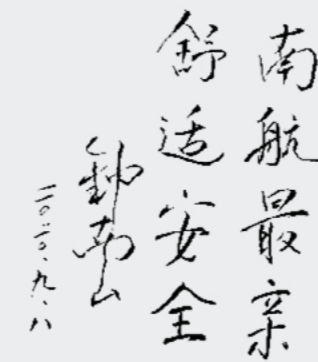 南航最亲
舒适安全
钟南山
二〇二〇、九、八